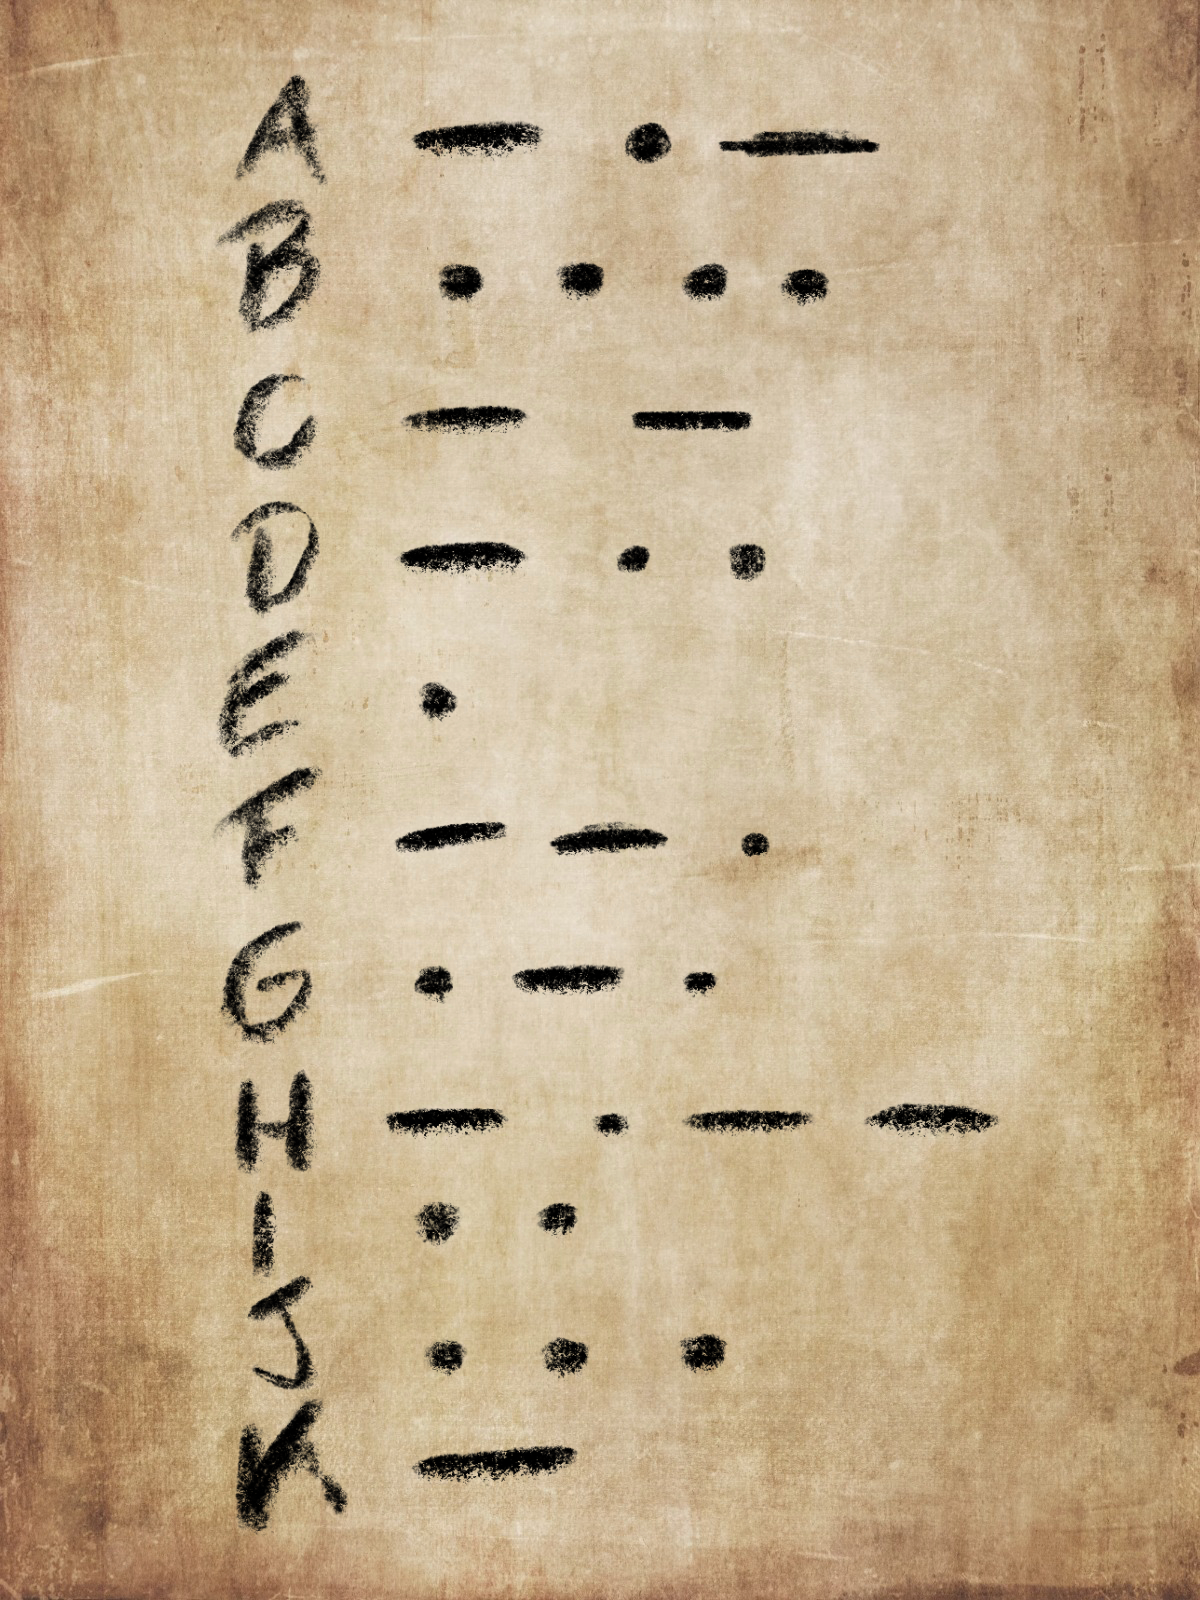 A — • —
B • • • •
C — —
D — • •
E •
F — — •
G • — •
H — • — —
I • •
J • • •
K —